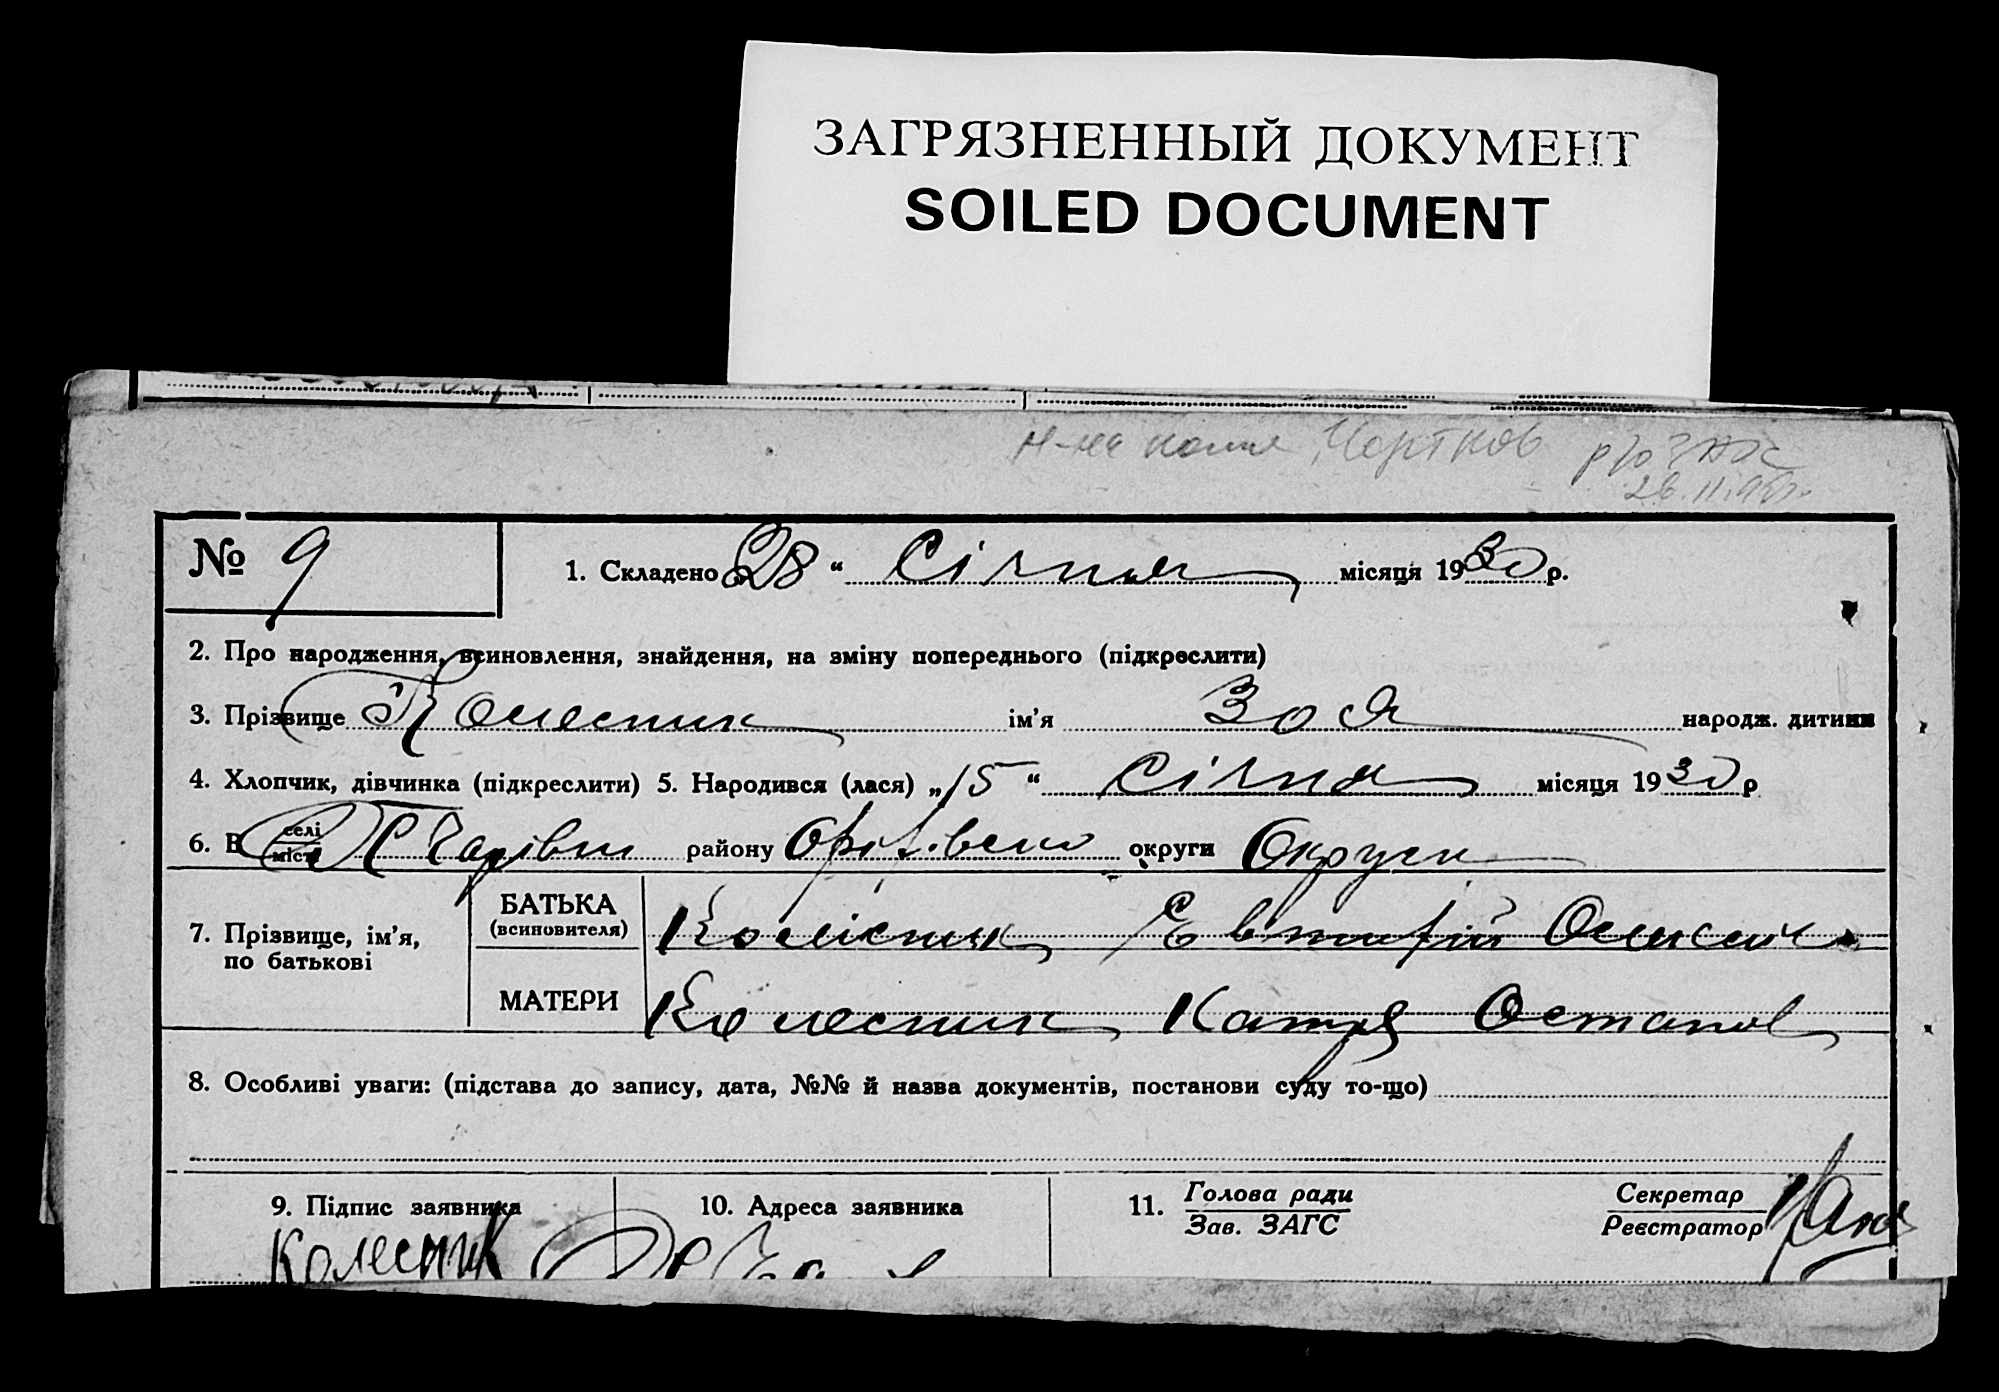 ЗАГРЯЗНЕННЫЙ ДОКУМЕНТ
SOILED DOCUMENT
№ 9
1. Складено 28 “ Січня місяця 1930 р.
2. Про народження, всиновлення, знайдення, на зміну попереднього (підкреслити)
3. Прізвище Колесник ім’я Зоя народж. дитини
4. Хлопчик, дівчинка (підкреслити) 5. Народився (лася) „15“ Січня місяця 1930 р
6. В селі місті району округи Округи
7. Прізвище, ім’я, по батькові
БАТЬКА (всиновителя) Колісник
МАТЕРИ Колесник Катря Остапов
8. Особливі уваги: (підстава до запису, дата, №№ й назва документів, постанови суду то-що)
9. Підпис заявника 10. Адреса заявника 11. Голова ради Зав. ЗАГС Секретар Реєстратор
Колесник